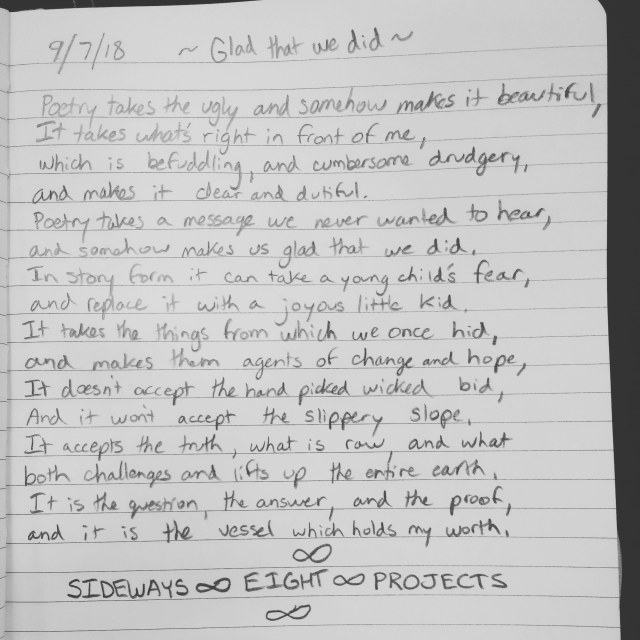 9/7/18 ~ Glad that we did ~
Poetry takes the ugly and somehow makes it beautiful,
It takes what's right in front of me,
which is befuddling, and cumbersome drudgery,
and makes it clear and dutiful.
Poetry takes a message we never wanted to hear,
and somehow makes us glad that we did.
In story form it can take a young child's fear,
and replace it with a joyous little kid.
It takes the things from which we once hid,
and makes them agents of change and hope,
It doesn't accept the hand picked wicked bid,
And it won't accept the slippery slope.
It accepts the truth, what is raw, and what
both challenges and lifts up the entire earth.
It is the question, the answer, and the proof,
and it is the vessel which holds my worth.
∞
SIDEWAYS ∞ EIGHT ∞ PROJECTS
∞